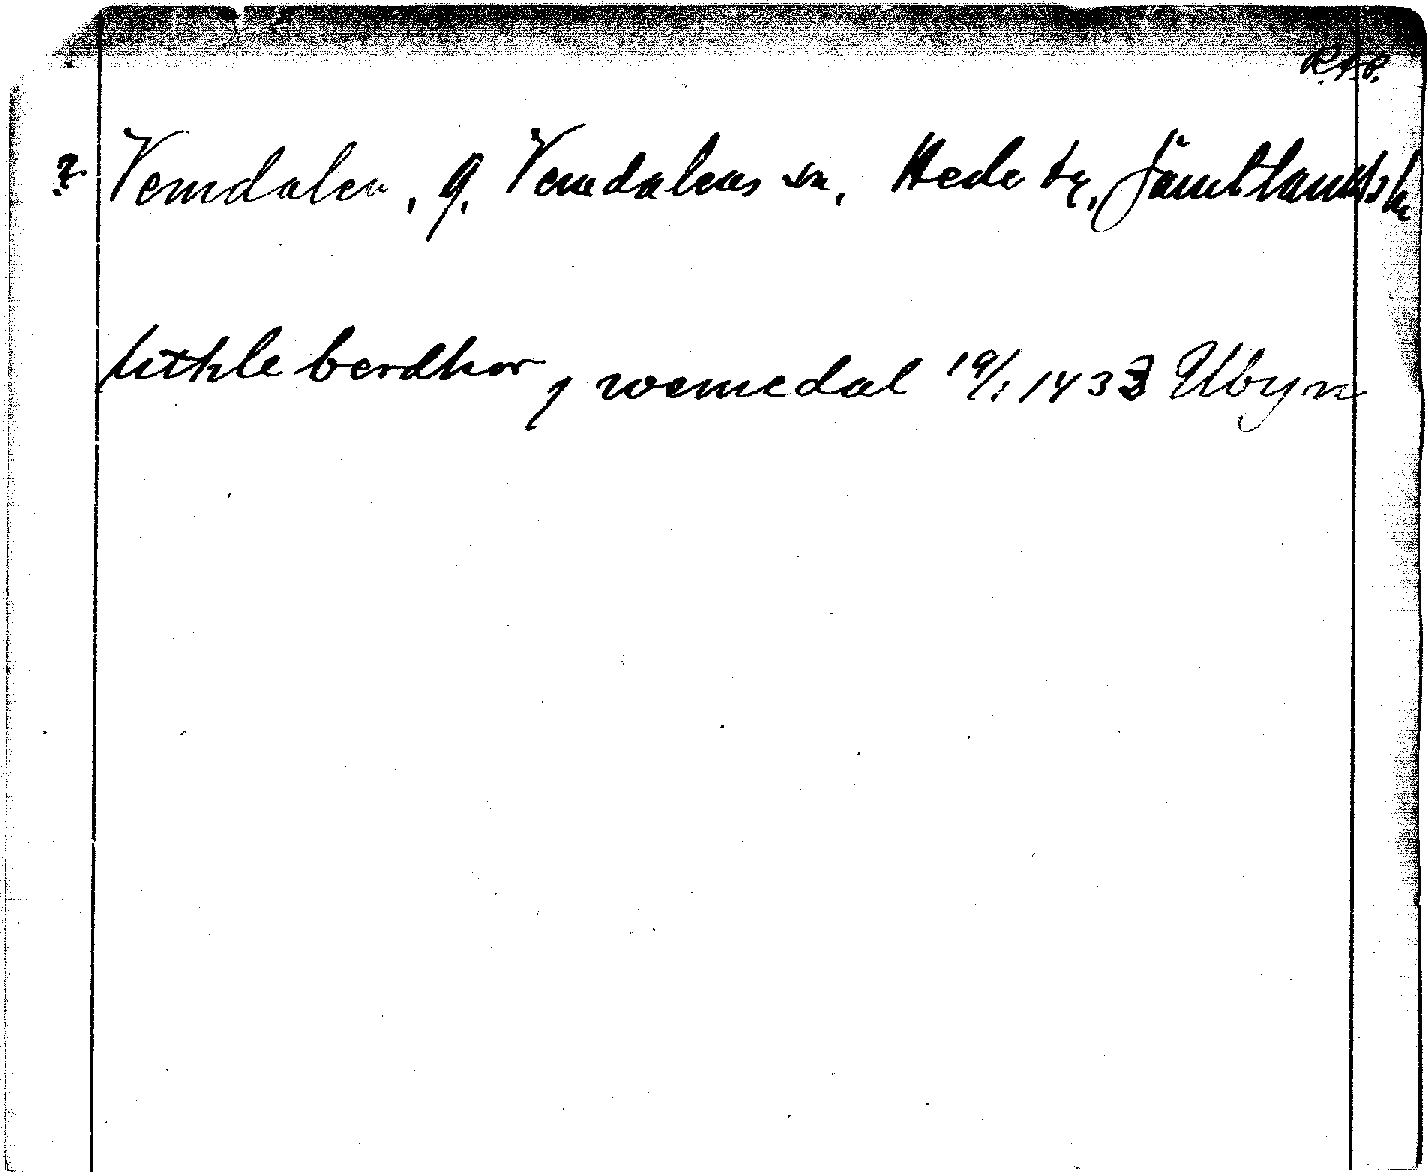 R.A.P.
? Vemdalen, g. Vemdalens sn. Hede tg. Jämtlands l.
lithle berdhor j wemedal 19/1 1433 Ubyn